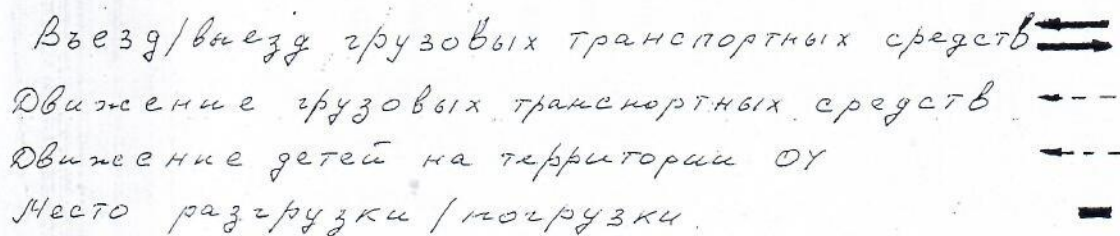 Въезд/выезд грузовых транспортных средств
Движение грузовых транспортных средств
Движение детей на территории ОУ
Место разгрузки/погрузки